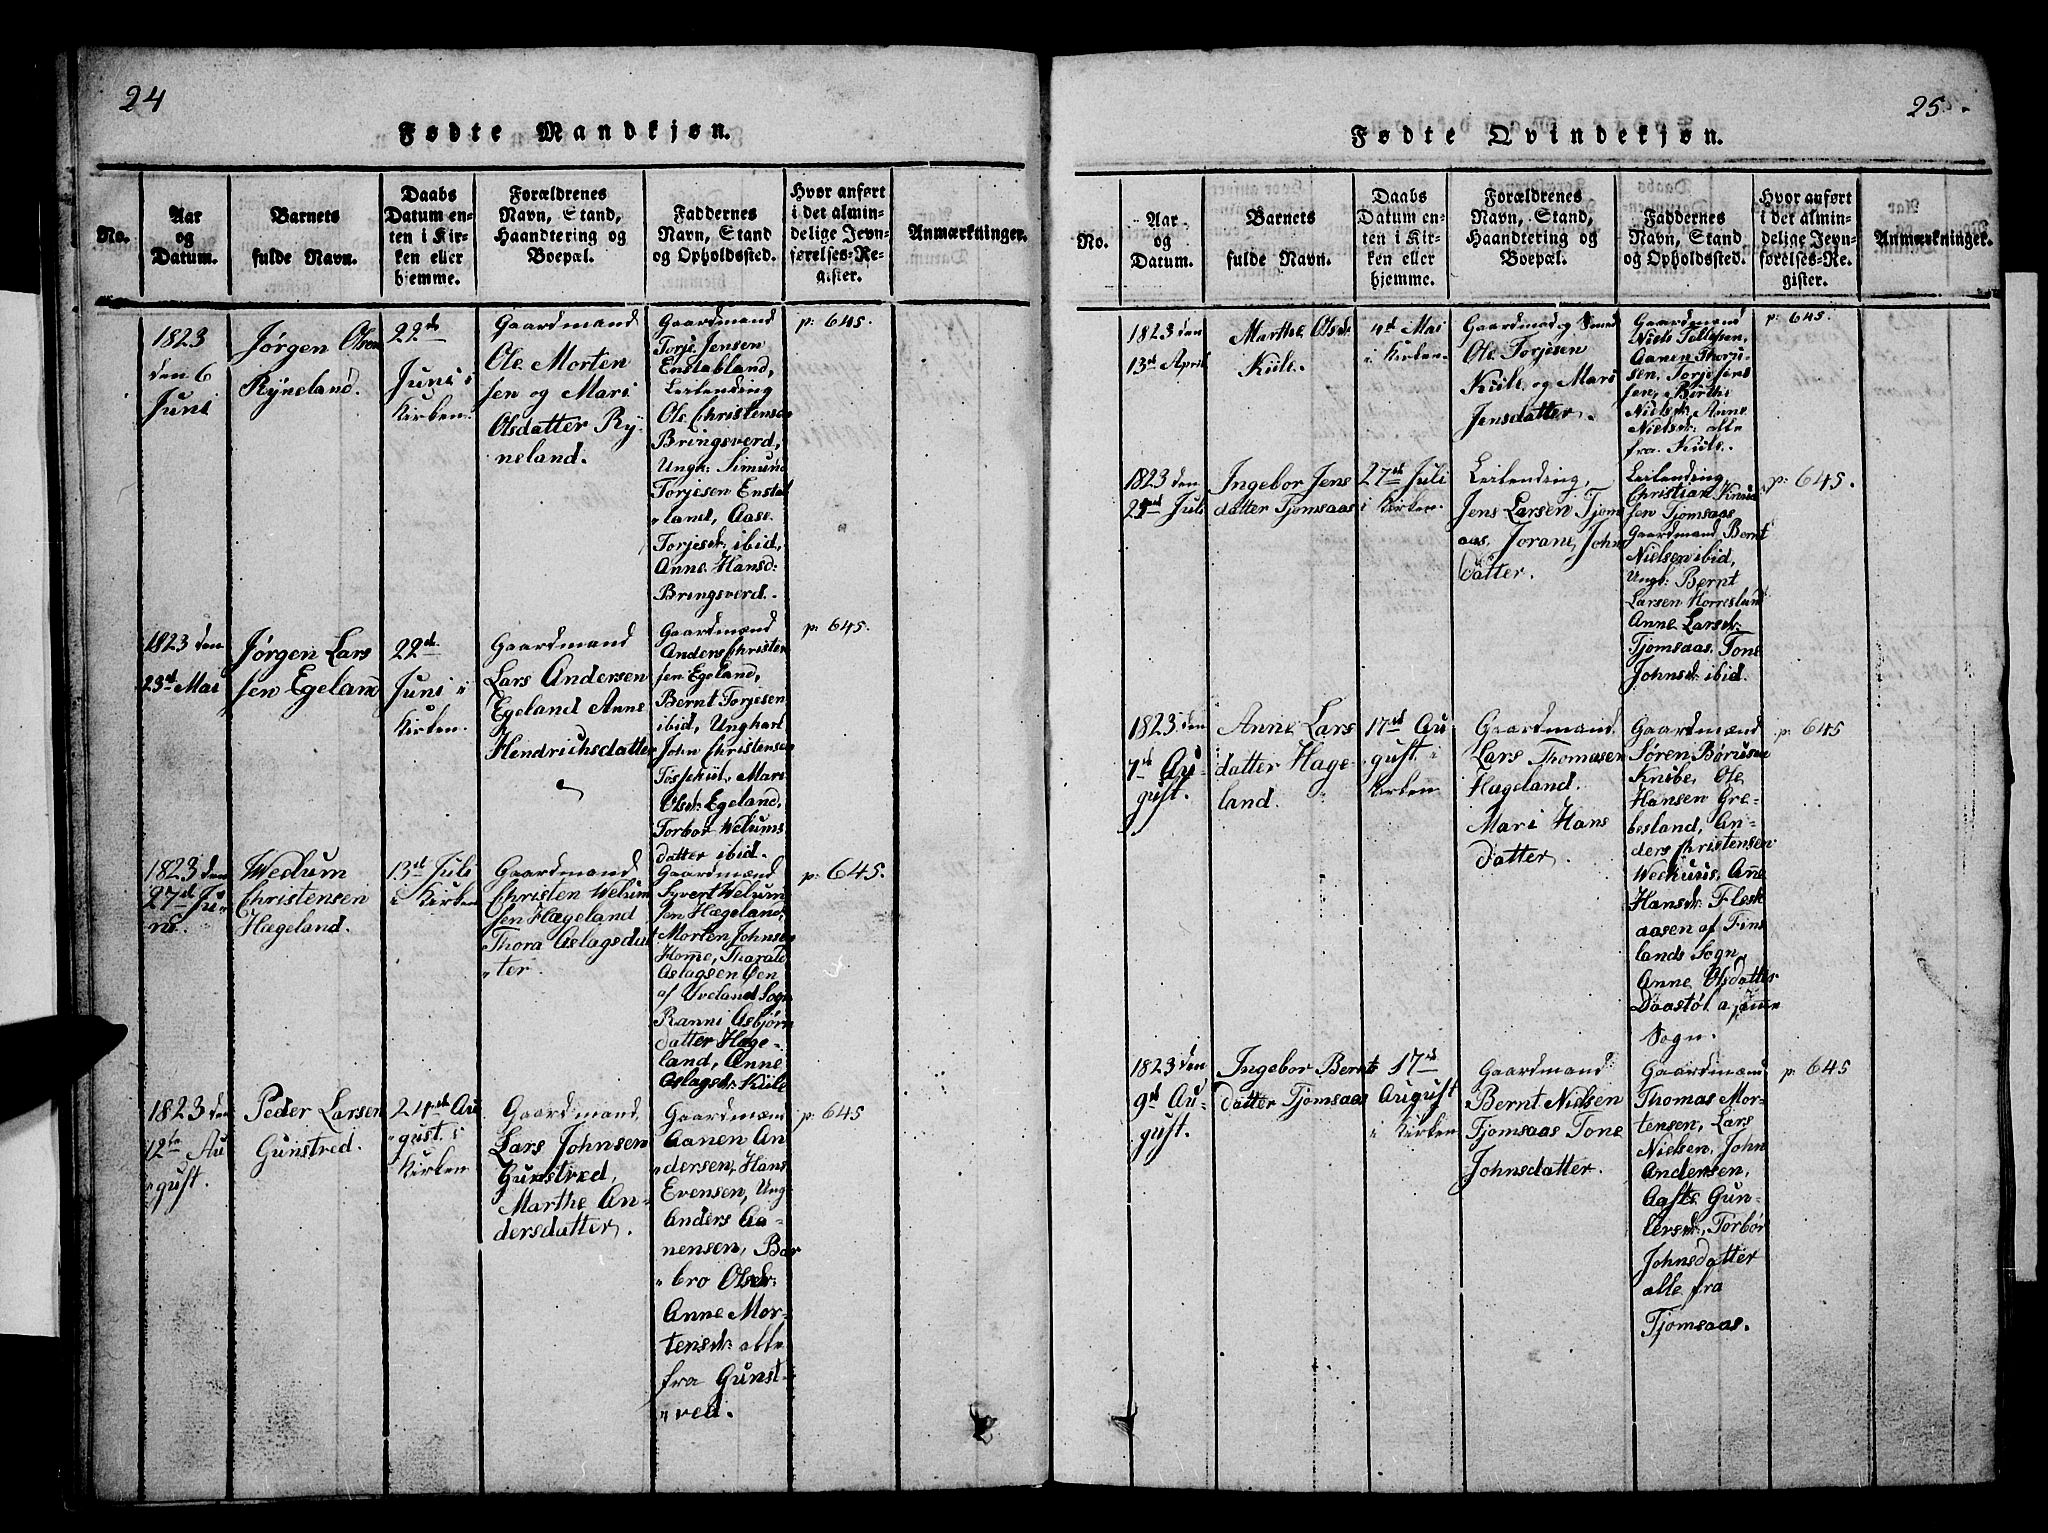 24
Fødte Mandkjøn.
No.
Aar
og
Datum.
Barnets
fulde Navn.
Daabs
Datum en-
ten i Kir-
ken eller
hjemme.
Forældrenes
Navn, Stand,
Haandtering og
Boepæl.
Faddernes
Navn, Stand
og Opholdssted.
Hvor anført
i det almin-
delige Jevn-
førelses-Re-
gister.
Anmærkninger.
1823
den 6
Juni
Jørgen Olsen
Ryneland.
22de
Juni i
Kirken.
Gaardmand
Ole Morten
sen og Mari
Olsdatter Ry-
neland.
Gaardmænd
Torje Jensen
Enstabland,
Leilending
Ole Christensen
Bringsverd,
Ungk: Simund
Torjesen Enstab
land, Aase
Torjesdr: ibid,
Anne Hansd:
Bringsverd.
p: 645.
1823 den
23de Mai
Jørgen Lars
sen Egeland
22de
Juni i
Kirken.
Gaardmand
Lars Andersen
Egeland Anne
Hendrichsdatter
Gaardmænd
Anders Christen
sen Egeland,
Bernt Torjesen
ibid, Ungkarl
John Christensen
Mari
Olsdr: Egeland,
Torbor Welums
datter ibid.
p: 645.
1823 den
27de Ju-
ni.
Wedum
Christensen
Hægeland.
13de Juli
i Kirken
Gaardmand
Christen Welum
sen Hægeland
Thora Aslagsdat
ter.
Gaardmænd
Syvert Welum
sen Hægeland,
Morten Johnsen
Home, Tharald
Aslagsen Øen
af Iveland Sogn
Ranni Asbjørn
datter Hæge-
land, Anne
Aslagsdr: Kiile
p: 645.
1823 den
12te Au
gust.
Peder Larsen
Gunstved.
24de Au
gust i
Kirken
Gaardmand
Lars Johnsen
Gunstved,
Marthe An-
dersdatter.
Gaardmænd
Aanen An
dersen, Hans
Evensen, Ung
Anders Aa-
nensen, Bar
bro Olsdr:
Anne Mor-
tensdr: alle
fra Gunst-
ved.
p: 645
25.
Fødte Qvindekjøn.
No.
Aar
og
Datum.
Barnets
fulde Navn.
Daabs
Datum en-
ten i Kir-
ken eller
hjemme.
Forældrenes
Navn, Stand,
Haandtering og
Boepæl.
Faddernes
Navn, Stand
og Opholdssted.
Hvor anført
i det almin-
delige Jevn-
førelses-Re-
gister.
Anmærkninger.
1823 den
13de April
Marthe Olsdr
Kiile.
4de Mai
i Kirken
Gaardmand og Smed
Ole Torjesen
Kiile og Mari
Jensdatter.
Gaardmænd
Niels Tellefsen,
Aanen Thorju
sen, Torje Jens
sen, Birthe
Nielsdr, Anne
Nielsdr: alle
fra Kiile.
p: 645.
1823 den
Juli
Ingebor Jens
datter Tjomsaas
27de Juli
i Kirken
Leilending
Jens Larsen Tjoms
aas, Jorane Johns
datter.
Leilending
Christian Knud
sen Tjomsaas
Gaardmand Bernt
Nielsen ibid,
Ungk: Bernt
Larsen Horreslund
Anne Larsdr:
Tjomsaas, Tone
Johnsdr: ibid.
p: 645.
1823 den
7de Au-
gust.
Anne Lars
datter Hæge-
land.
17de Au
gust i
Kirken
Gaardmand
Lars Thomasen
Hægeland.
Mari Hans
datter.
Gaardmænd
Søren Børusen
Knibe, Ole
Hansen Gre-
besland, An-
ders Christensen
Weehuus, Ane
Hansdr: Flesk
aasen af Fins
lands Sogn,
Anne Olsdatter
Daastøl
Sogn.
p: 645
1823 den
9de Au-
gust.
Ingebor Bernt
datter Tjomsaas
17de
August
i Kirken
Gaardmand
Bernt Nielsen
Tjomsaas Tone
Johnsdatter.
Gaardmænd
Thomas Mor-
tensen, Lars
Nielsen, John
Andersen,
Aaste Gun-
lersdr:, Torbor
Johnsdatter
alle fra
Tjomsaas.
p: 645